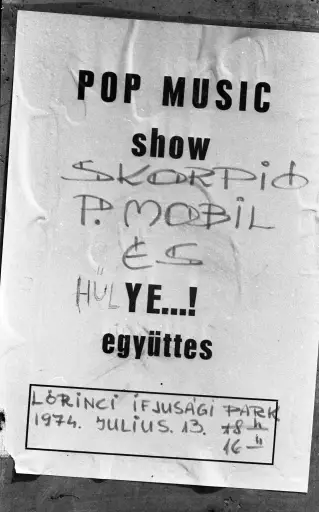 POP MUSIC
show
SKORPIÓ
P. MOBIL
ÉS
HÜLYE...!
együttes
LŐRINCI IFJUSÁGI PARK
1974. JULIUS. 13. 18 h
16 h